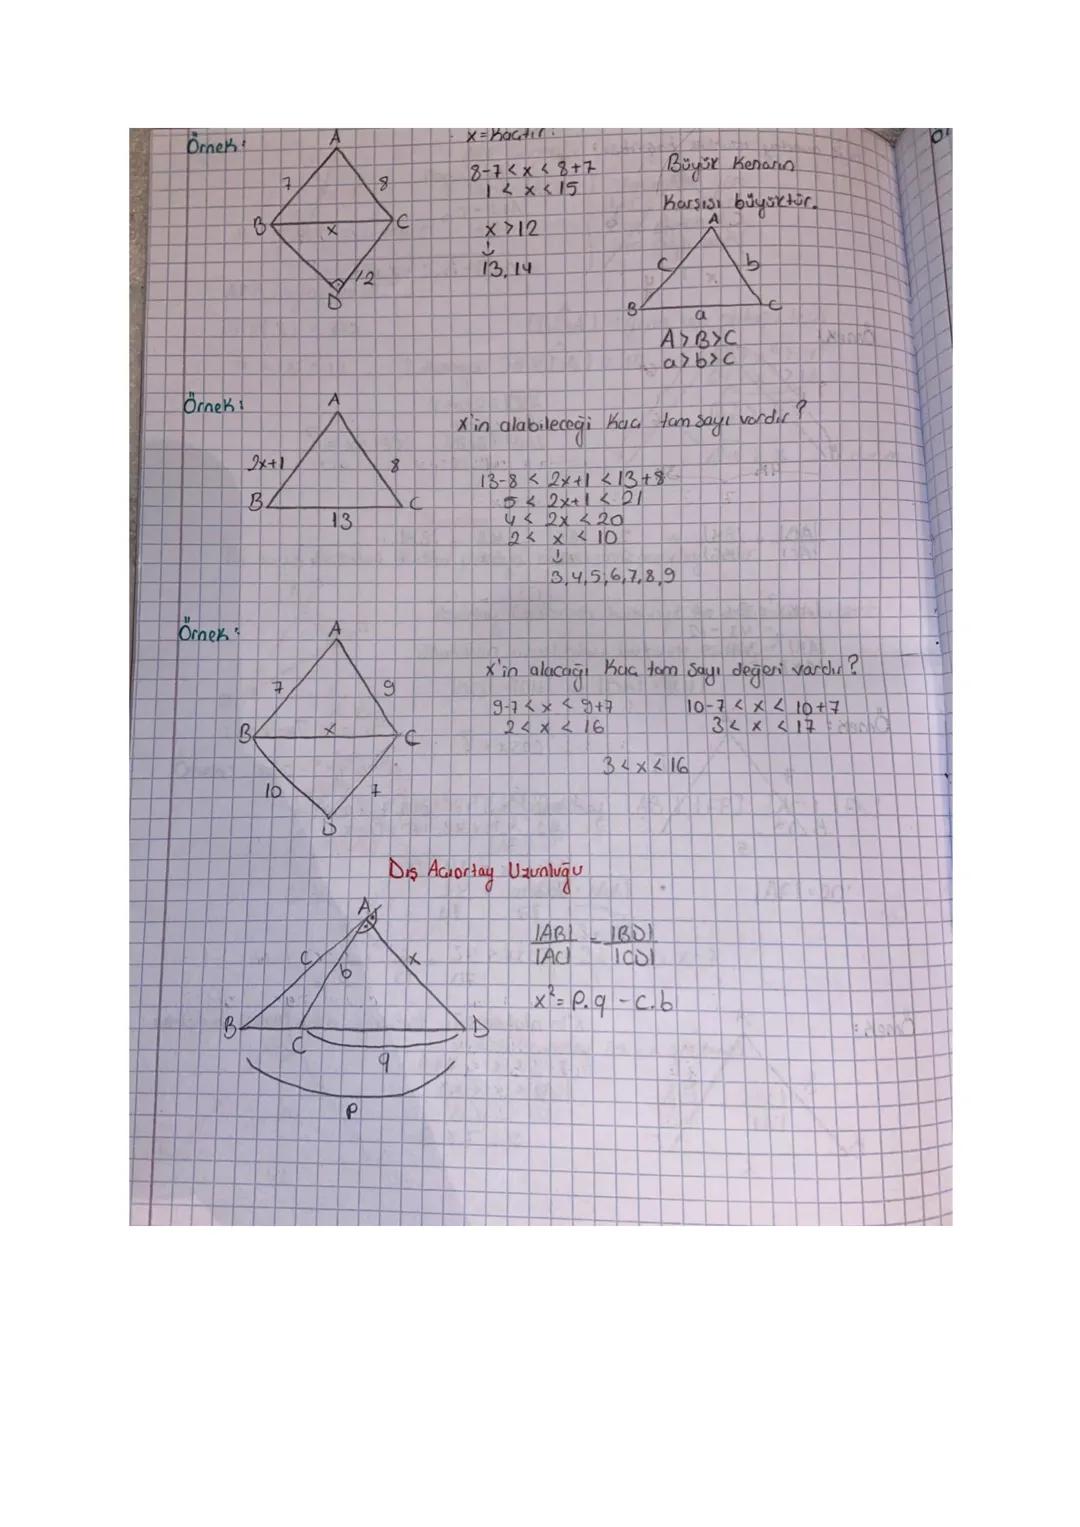 Örnek:
A
7
8
B
x
C
12
D
x = Kaçtır.
8-7 < x < 8+7
1 < x < 15
x > 12
↓
13, 14
Büyük Kenarın
Karşısı büyüktür.
A
c
b
B
a
C
A > B > C
a > b > c
Örnek:
A
2x+1
8
B
13
C
x'in alabileceği Kaç tam sayı vardır?
13-8 < 2x+1 < 13+8
5 < 2x+1 < 21
4 < 2x < 20
2 < x < 10
↓
3,4,5,6,7,8,9
Örnek:
A
7
9
B
x
C
10
7
D
x'in alacağı Kaç tam sayı değeri vardır?
9-7 < x < 9+7
2 < x < 16
10-7 < x < 10+7
3 < x < 17
3 < x < 16
Dış Açıortay Uzunluğu
A
c
b
x
B
C
D
q
P
|AB| = |BD|
|AC| |CD|
x² = P.q - c.b